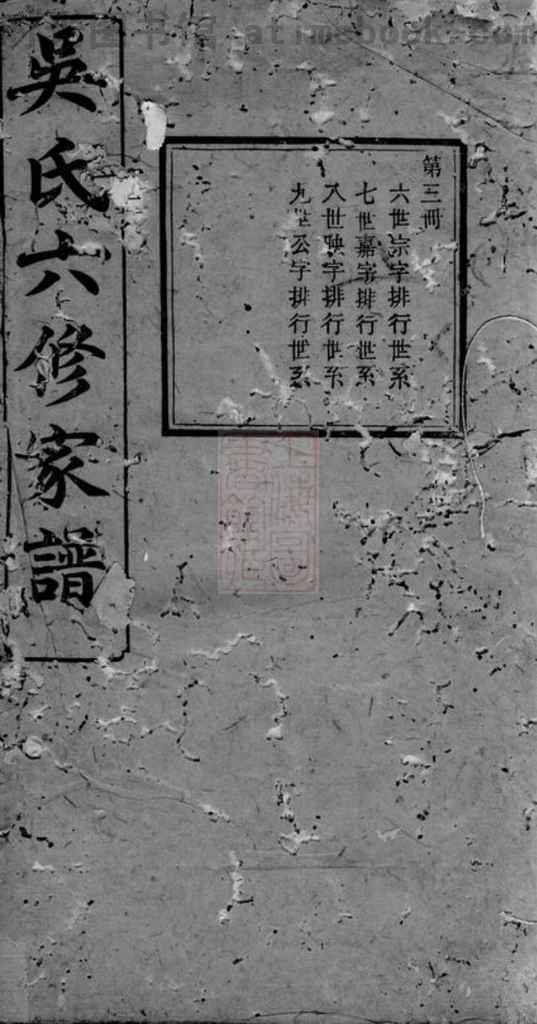 第三冊
六世宗字排行世系
七世嘉字排行世系
八世映字排行世系
九世公字排行世系
吳氏六修家譜
书馆 atimebook.com